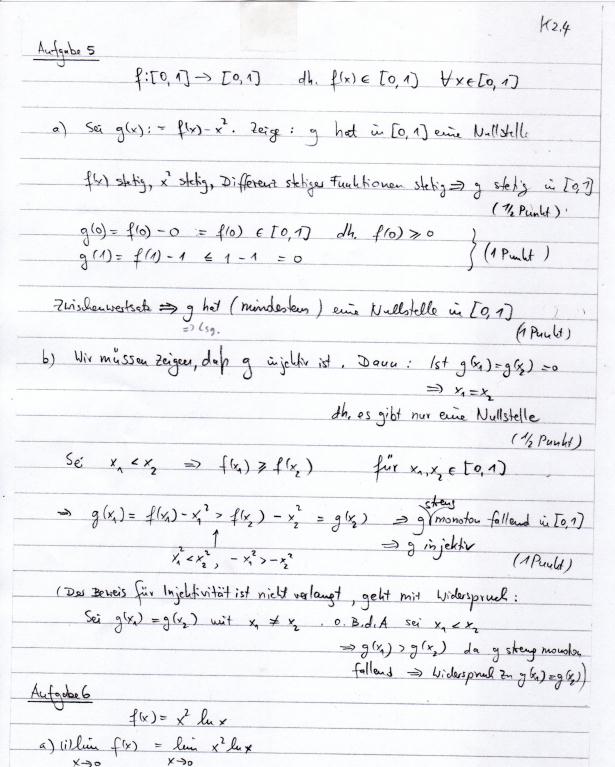 K2.4
Aufgabe 5
f:[0,1] → [0,1] dh. f(x) ∈ [0,1] ∀ x ∈ [0,1]
a) Sei g(x) := f(x) - x². Zeige: g hat in [0,1] eine Nullstelle
f(x) stetig, x² stetig, Differenz stetiger Funktionen stetig ⇒ g stetig in [0,1]
(1/2 Punkt).
g(0) = f(0) - 0 = f(0) ∈ [0,1] dh. f(0) ≥ 0
g(1) = f(1) - 1 ≤ 1 - 1 = 0 } (1 Punkt)
Zwischenwertsatz ⇒ g hat (mindestens) eine Nullstelle in [0,1]
⇒ Lsg. (1 Punkt)
b) Wir müssen zeigen, daß g injektiv ist. Dann: Ist g(x₁) = g(x₂) = 0
⇒ x₁ = x₂
dh. es gibt nur eine Nullstelle
(1/2 Punkt)
Sei x₁ < x₂ ⇒ f(x₁) ≥ f(x₂) für x₁, x₂ ∈ [0,1]
⇒ g(x₁) = f(x₁) - x₁² > f(x₂) - x₂² = g(x₂) ⇒ g streng monoton fallend in [0,1]
↑ ⇒ g injektiv
x₁² < x₂², -x₁² > -x₂² (1 Punkt)
(Der Beweis für Injektivität ist nicht verlangt, geht mit Widerspruch:
Sei g(x₁) = g(x₂) mit x₁ ≠ x₂. o.B.d.A sei x₁ < x₂
⇒ g(x₁) > g(x₂) da g streng monoton
fallend ⇒ Widerspruch zu g(x₁) = g(x₂))
Aufgabe 6
f(x) = x² ln x
a) (i) lim f(x) = lim x² ln x
x→0 x→0